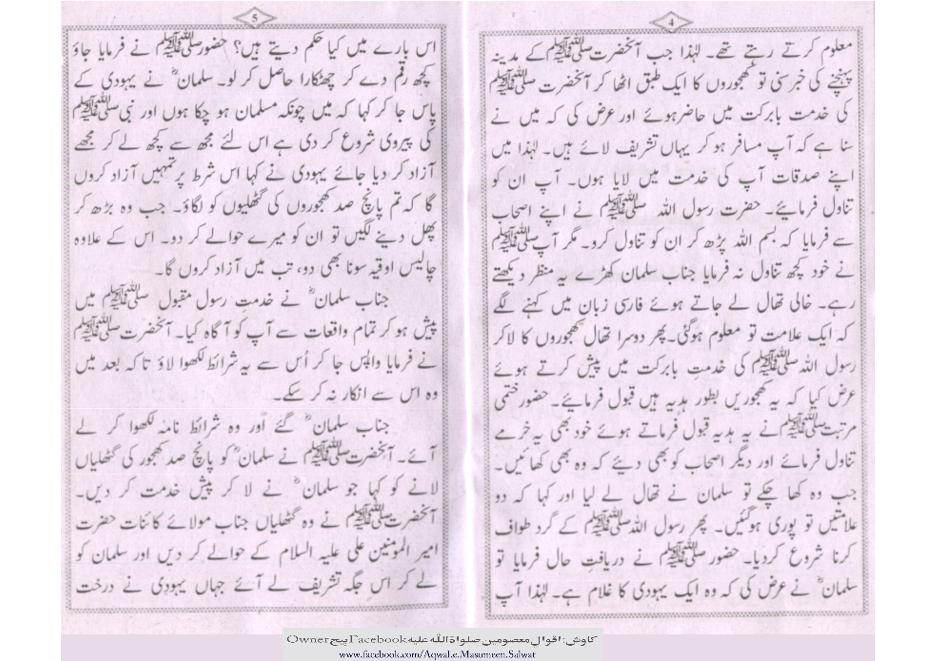 4
معلوم کرتے رہتے تھے۔ لہٰذا جب آنحضرت ﷺ کے مدینہ
پہنچنے کی خبر سنی تو کھجوروں کا ایک طبق اٹھا کر آنحضرت ﷺ
کی خدمت بابرکت میں حاضر ہوئے اور عرض کی کہ میں نے
سنا ہے کہ آپ مسافر ہو کر یہاں تشریف لائے ہیں۔ لہٰذا میں
اپنے صدقات آپ کی خدمت میں لایا ہوں۔ آپ ان کو
تناول فرمائیے۔ حضرت رسول اللہ ﷺ نے اپنے اصحاب
سے فرمایا کہ بسم اللہ پڑھ کر ان کو تناول کرو۔ مگر آپ ﷺ
نے خود کچھ تناول نہ فرمایا جناب سلمان کھڑے یہ منظر دیکھتے
رہے۔ خالی تھال لے جاتے ہوئے فارسی زبان میں کہنے لگے
کہ ایک علامت تو معلوم ہوگئی۔ پھر دوسرا تھال کھجوروں کا لاکر
رسول اللہ ﷺ کی خدمتِ بابرکت میں پیش کرتے ہوئے
عرض کیا کہ یہ کھجوریں بطور ہدیہ ہیں قبول فرمائیے۔ حضور ختمی
مرتبت ﷺ نے یہ ہدیہ قبول فرماتے ہوئے خود بھی یہ خرمے
تناول فرمائے اور دیگر اصحاب کو بھی دیئے کہ وہ بھی کھائیں۔
جب وہ کھا چکے تو سلمان نے تھال لے لیا اور کہا کہ دو
علامتیں تو پوری ہوگئیں۔ پھر رسول اللہ ﷺ کے گرد طواف
کرنا شروع کردیا۔ حضور ﷺ نے دریافت حال فرمایا تو
سلمانؓ نے عرض کی کہ وہ ایک یہودی کا غلام ہے۔ لہٰذا آپ
5
اس بارے میں کیا حکم دیتے ہیں؟ حضور ﷺ نے فرمایا جاؤ
کچھ رقم دے کر چھٹکارا حاصل کر لو۔ سلمانؓ نے یہودی کے
پاس جا کر کہا کہ میں چونکہ مسلمان ہو چکا ہوں اور نبی ﷺ
کی پیروی شروع کر دی ہے اس لئے مجھ سے کچھ لے کر مجھے
آزاد کر دیا جائے یہودی نے کہا اس شرط پر تمہیں آزاد کروں
گا کہ تم پانچ صد کھجوروں کی گٹھلیوں کو لگاؤ۔ جب وہ بڑھ کر
پھل دینے لگیں تو ان کو میرے حوالے کر دو۔ اس کے علاوہ
چالیس اوقیہ سونا بھی دو، تب میں آزاد کروں گا۔
جناب سلمانؓ نے خدمتِ رسول مقبول ﷺ میں
پیش ہو کر تمام واقعات سے آپ کو آگاہ کیا۔ آنحضرت ﷺ
نے فرمایا واپس جا کر اُس سے یہ شرائط لکھوا لاؤ تاکہ بعد میں
وہ اس سے انکار نہ کر سکے۔
جناب سلمانؓ گئے اور وہ شرائط نامہ لکھوا کر لے
آئے۔ آنحضرت ﷺ نے سلمانؓ کو پانچ صد کھجور کی گٹھلیاں
لانے کو کہا جو سلمانؓ نے لا کر پیش خدمت کر دیں۔
آنحضرت ﷺ نے وہ گٹھلیاں جناب مولائے کائنات حضرت
امیر المومنین علی علیہ السلام کے حوالے کر دیں اور سلمان کو
لے کر اس جگہ تشریف لے آئے جہاں یہودی نے درخت
کاوش: اقوال معصومین صلواۃ اللہ علیہ Facebook پیج Owner
www.facebook.com/Aqwal.e.Masumeen.Salwat